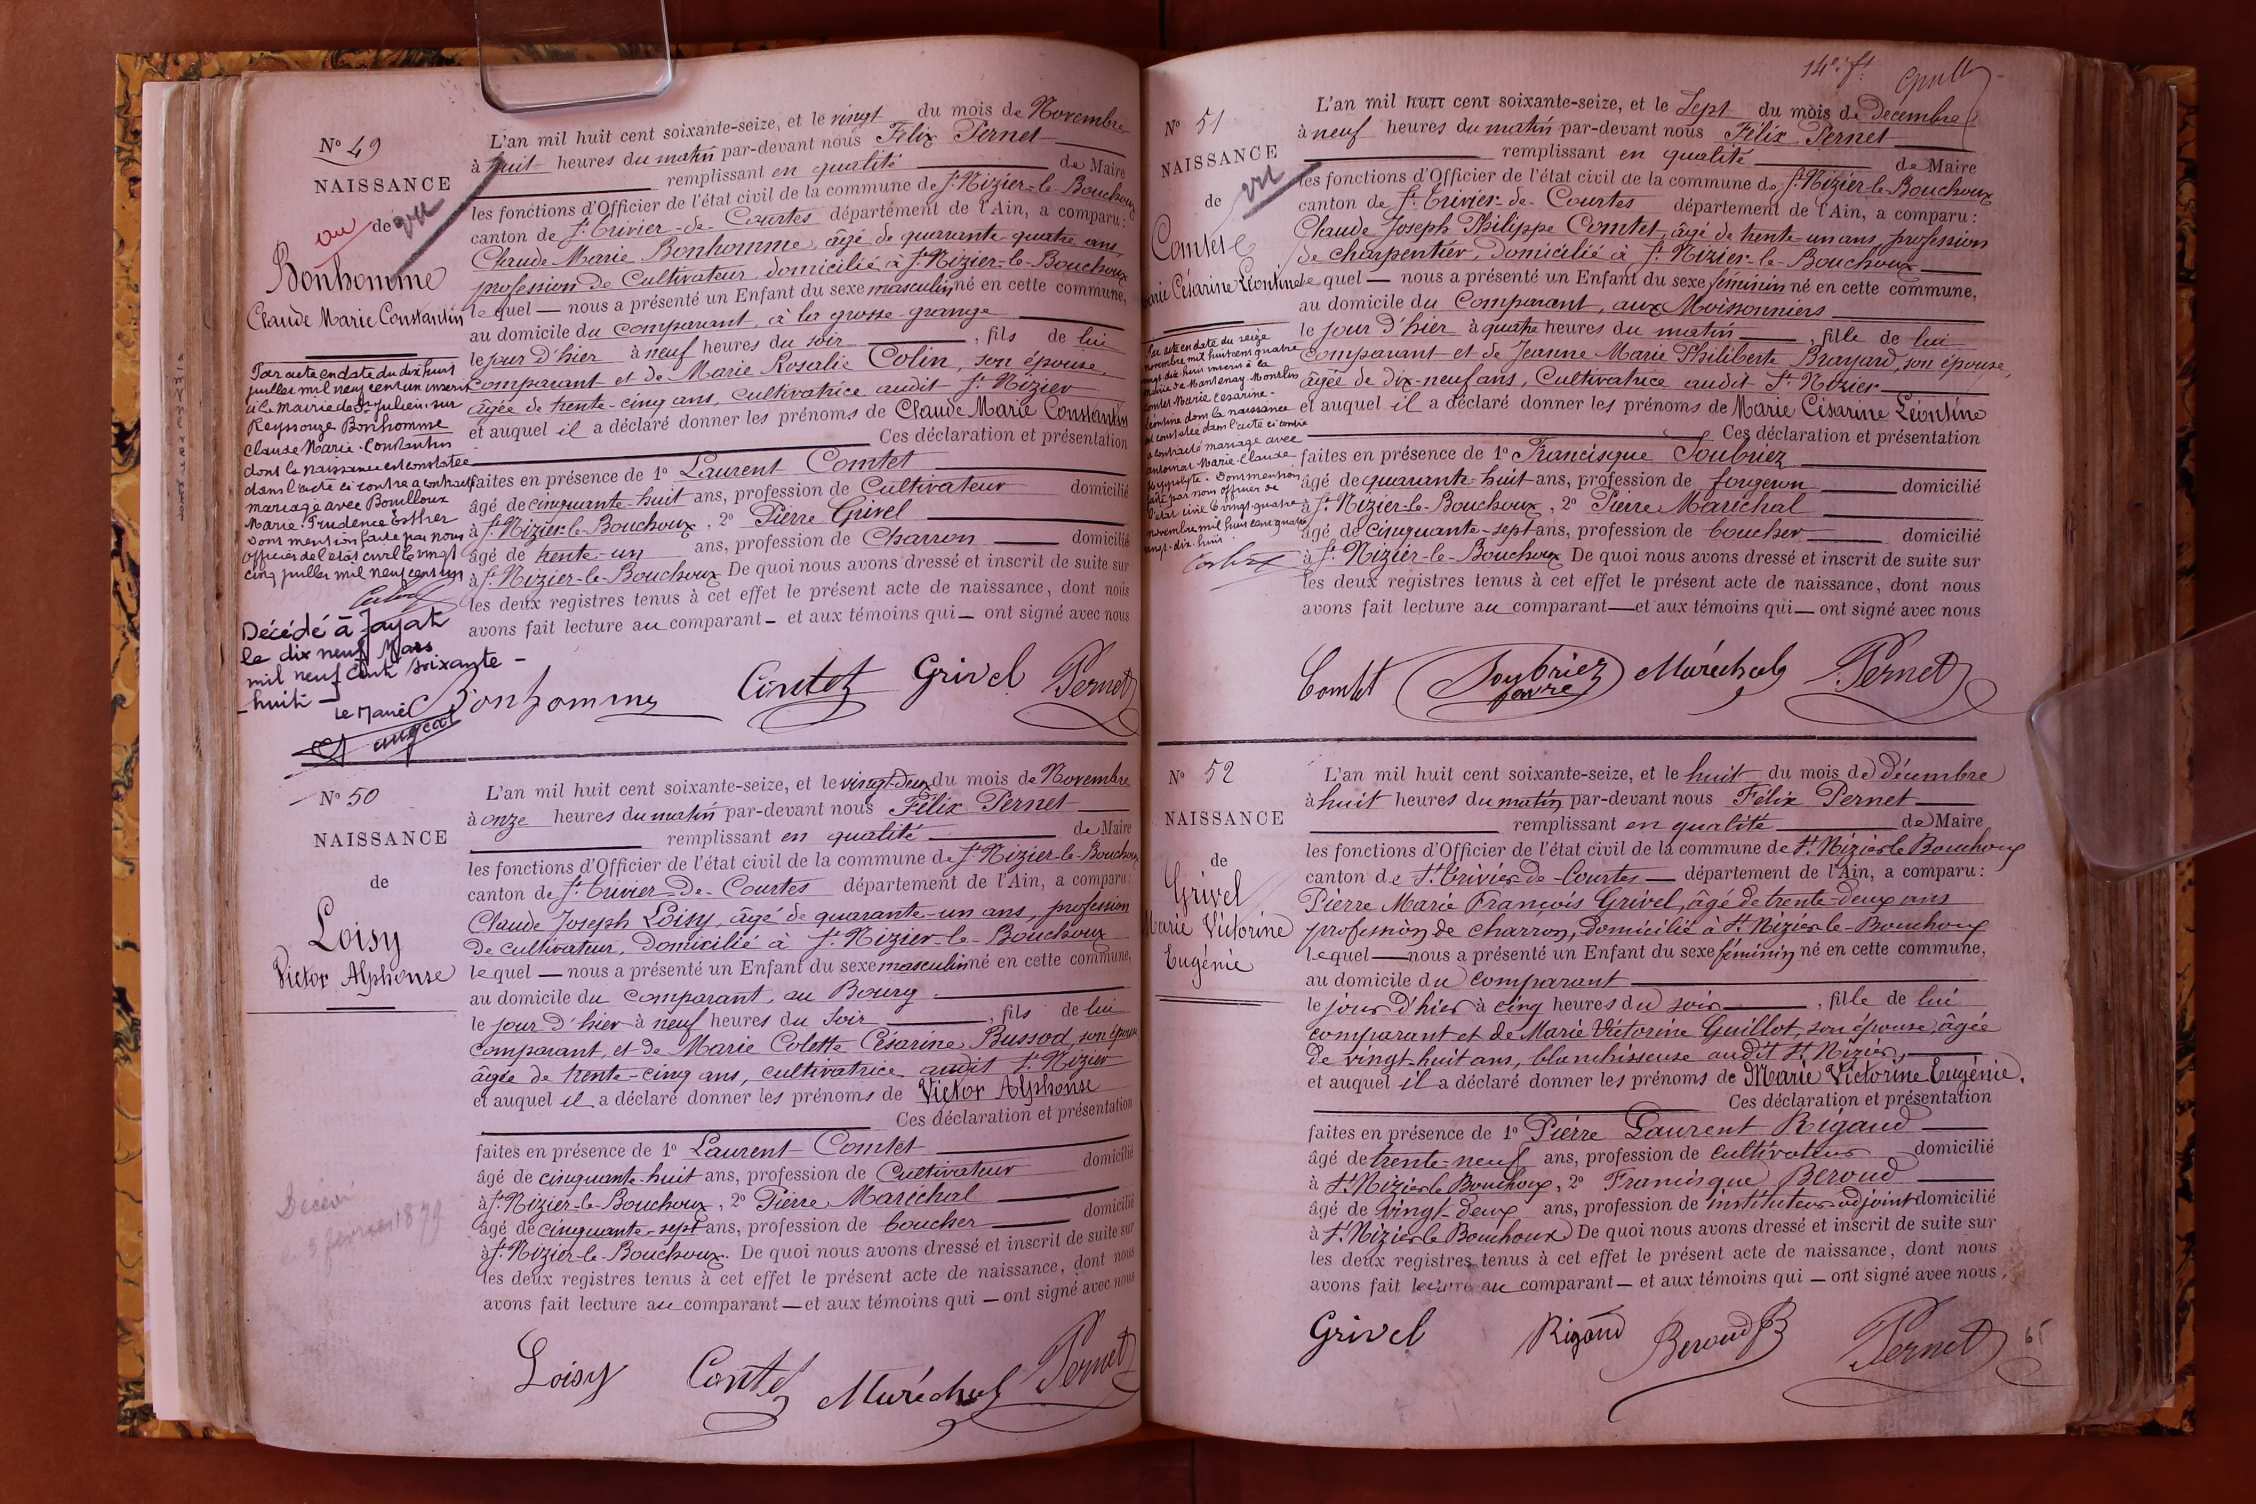 N° 49
NAISSANCE
de
vu
Bonhomme
Claude Marie Constantin
Par acte en date du dix huit
juillet mil neuf cent un inscrit
à la mairie de St Julien-sur
Reyssouze Bonhomme
Claude Marie Constantin
dont la naissance est constatée
dans l'acte ci contre a contracté
mariage avec Bouilloux
Marie Prudence Esther
Dont mention faite par nous
officier de l'état civil le vingt
cinq juillet mil neuf cent un
Décédé à Jayat
le dix neuf Mars
mil neuf cent soixante-
-huit-
Le Maire
L'an mil huit cent soixante-seize, et le vingt du mois de Novembre
à huit heures du matin par-devant nous Félix Pernet
remplissant en qualité de Maire
les fonctions d'Officier de l'état civil de la commune de St Nizier-le-Bouchoux
canton de St Trivier-de-Courtes département de l'Ain, a comparu:
Claude Marie Bonhomme, âgé de quarante-quatre ans,
profession de Cultivateur, domicilié à St Nizier-le-Bouchoux
lequel — nous a présenté un Enfant du sexe masculin né en cette commune,
au domicile du comparant, à la grosse grange
le jour d'hier à neuf heures du soir , fils de lui
comparant et de Marie Rosalie Colin, son épouse,
âgée de trente-cinq ans, cultivatrice audit St Nizier
et auquel il a déclaré donner les prénoms de Claude Marie Constantin
Ces déclaration et présentation
faites en présence de 1° Laurent Comtet
âgé de cinquante-huit ans, profession de Cultivateur domicilié
à St Nizier-le-Bouchoux, 2° Pierre Grivel
âgé de trente-un ans, profession de Charron domicilié
à St Nizier-le-Bouchoux De quoi nous avons dressé et inscrit de suite sur
les deux registres tenus à cet effet le présent acte de naissance, dont nous
avons fait lecture au comparant — et aux témoins qui — ont signé avec nous
Bonhomme Comtet Grivel Pernet
N° 50
NAISSANCE
de
Loisy
Victor Alphonse
Décédé
le 9 février 1879
L'an mil huit cent soixante-seize, et le vingt-deux du mois de Novembre
à onze heures du matin par-devant nous Félix Pernet
remplissant en qualité de Maire
les fonctions d'Officier de l'état civil de la commune de St Nizier-le-Bouchoux
canton de St Trivier-de-Courtes département de l'Ain, a comparu:
Claude Joseph Loisy, âgé de quarante-un ans, profession
de cultivateur, domicilié à St Nizier-le-Bouchoux
lequel — nous a présenté un Enfant du sexe masculin né en cette commune,
au domicile du comparant, au Bourg
le jour d'hier à neuf heures du soir , fils de lui
comparant, et de Marie Colette Césarine Bussod, son épouse
âgée de trente-cinq ans, cultivatrice audit St Nizier
et auquel il a déclaré donner les prénoms de Victor Alphonse
Ces déclaration et présentation
faites en présence de 1° Laurent Comtet
âgé de cinquante-huit ans, profession de Cultivateur domicilié
à St Nizier-le-Bouchoux, 2° Pierre Maréchal
âgé de cinquante-sept ans, profession de boucher domicilié
à St Nizier-le-Bouchoux. De quoi nous avons dressé et inscrit de suite sur
les deux registres tenus à cet effet le présent acte de naissance, dont nous
avons fait lecture au comparant — et aux témoins qui — ont signé avec nous
Loisy Comtet Maréchal Pernet
14e ft
N° 51
NAISSANCE
de
vu
Comtet
Marie Césarine Léontine
Par acte en date du seize
novembre mil huit cent quatre
vingt dix huit inscrit à la
mairie de Mantenay-Montlin
Comtet Marie Césarine-
Léontine dont la naissance
est constatée dans l'acte ci contre
a contracté mariage avec
Marie Claude
Dont mention
faite par nous officier de
l'état civil le vingt quatre
novembre mil huit cent quatre
vingt-dix-huit.
L'an mil huit cent soixante-seize, et le Sept du mois de Décembre
à neuf heures du matin par-devant nous Félix Pernet
remplissant en qualité de Maire
les fonctions d'Officier de l'état civil de la commune de St Nizier-le-Bouchoux
canton de St Trivier-de-Courtes département de l'Ain, a comparu:
Claude Joseph Philippe Comtet, âgé de trente-un ans, profession
de charpentier, domicilié à St Nizier-le-Bouchoux
lequel — nous a présenté un Enfant du sexe féminin né en cette commune,
au domicile du comparant, aux Moissonniers
le jour d'hier à quatre heures du matin , fille de lui
comparant et de Jeanne Marie Philiberte Brayard, son épouse,
âgée de dix-neuf ans, Cultivatrice audit St Nizier
et auquel il a déclaré donner les prénoms de Marie Césarine Léontine
Ces déclaration et présentation
faites en présence de 1° Francisque Soubriez
âgé de quarante-huit ans, profession de forgeron domicilié
à St Nizier-le-Bouchoux, 2° Pierre Maréchal
âgé de cinquante-sept ans, profession de boucher domicilié
à St Nizier-le-Bouchoux De quoi nous avons dressé et inscrit de suite sur
les deux registres tenus à cet effet le présent acte de naissance, dont nous
avons fait lecture au comparant — et aux témoins qui — ont signé avec nous
Comtet Soubriez favre Maréchal Pernet
N° 52
NAISSANCE
de
Grivel
Marie Victorine
Eugénie
L'an mil huit cent soixante-seize, et le huit du mois de décembre
à huit heures du matin par-devant nous Félix Pernet
remplissant en qualité de Maire
les fonctions d'Officier de l'état civil de la commune de St Nizier le Bouchoux
canton de St Trivier-de-Courtes — département de l'Ain, a comparu:
Pierre Marie François Grivel, âgé de trente-deux ans
profession de charron, domicilié à St Nizier le-Bouchoux
lequel — nous a présenté un Enfant du sexe féminin né en cette commune,
au domicile du comparant
le jour d'hier à cinq heures du soir , fille de lui
comparant et de Marie Victorine Guillot son épouse, âgée
de vingt-huit ans, blanchisseuse audit St Nizier,
et auquel il a déclaré donner les prénoms de Marie Victorine Eugénie.
Ces déclaration et présentation
faites en présence de 1° Pierre Laurent Rigaud
âgé de trente-neuf ans, profession de cultivateur domicilié
à St Nizier le Bouchoux, 2° Francisque Beroud
âgé de vingt-deux ans, profession de instituteur-adjoint domicilié
à St Nizier le Bouchoux De quoi nous avons dressé et inscrit de suite sur
les deux registres tenus à cet effet le présent acte de naissance, dont nous
avons fait lecture au comparant — et aux témoins qui — ont signé avec nous.
Grivel Rigaud Beroud Pernet
65